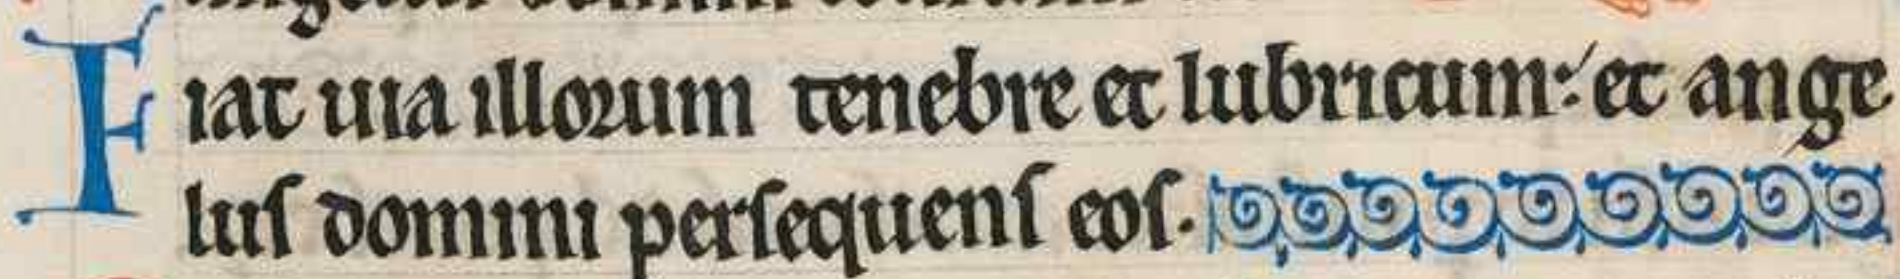 Fiat uia illorum tenebre et lubricum: et ange
lus domini persequens eos.